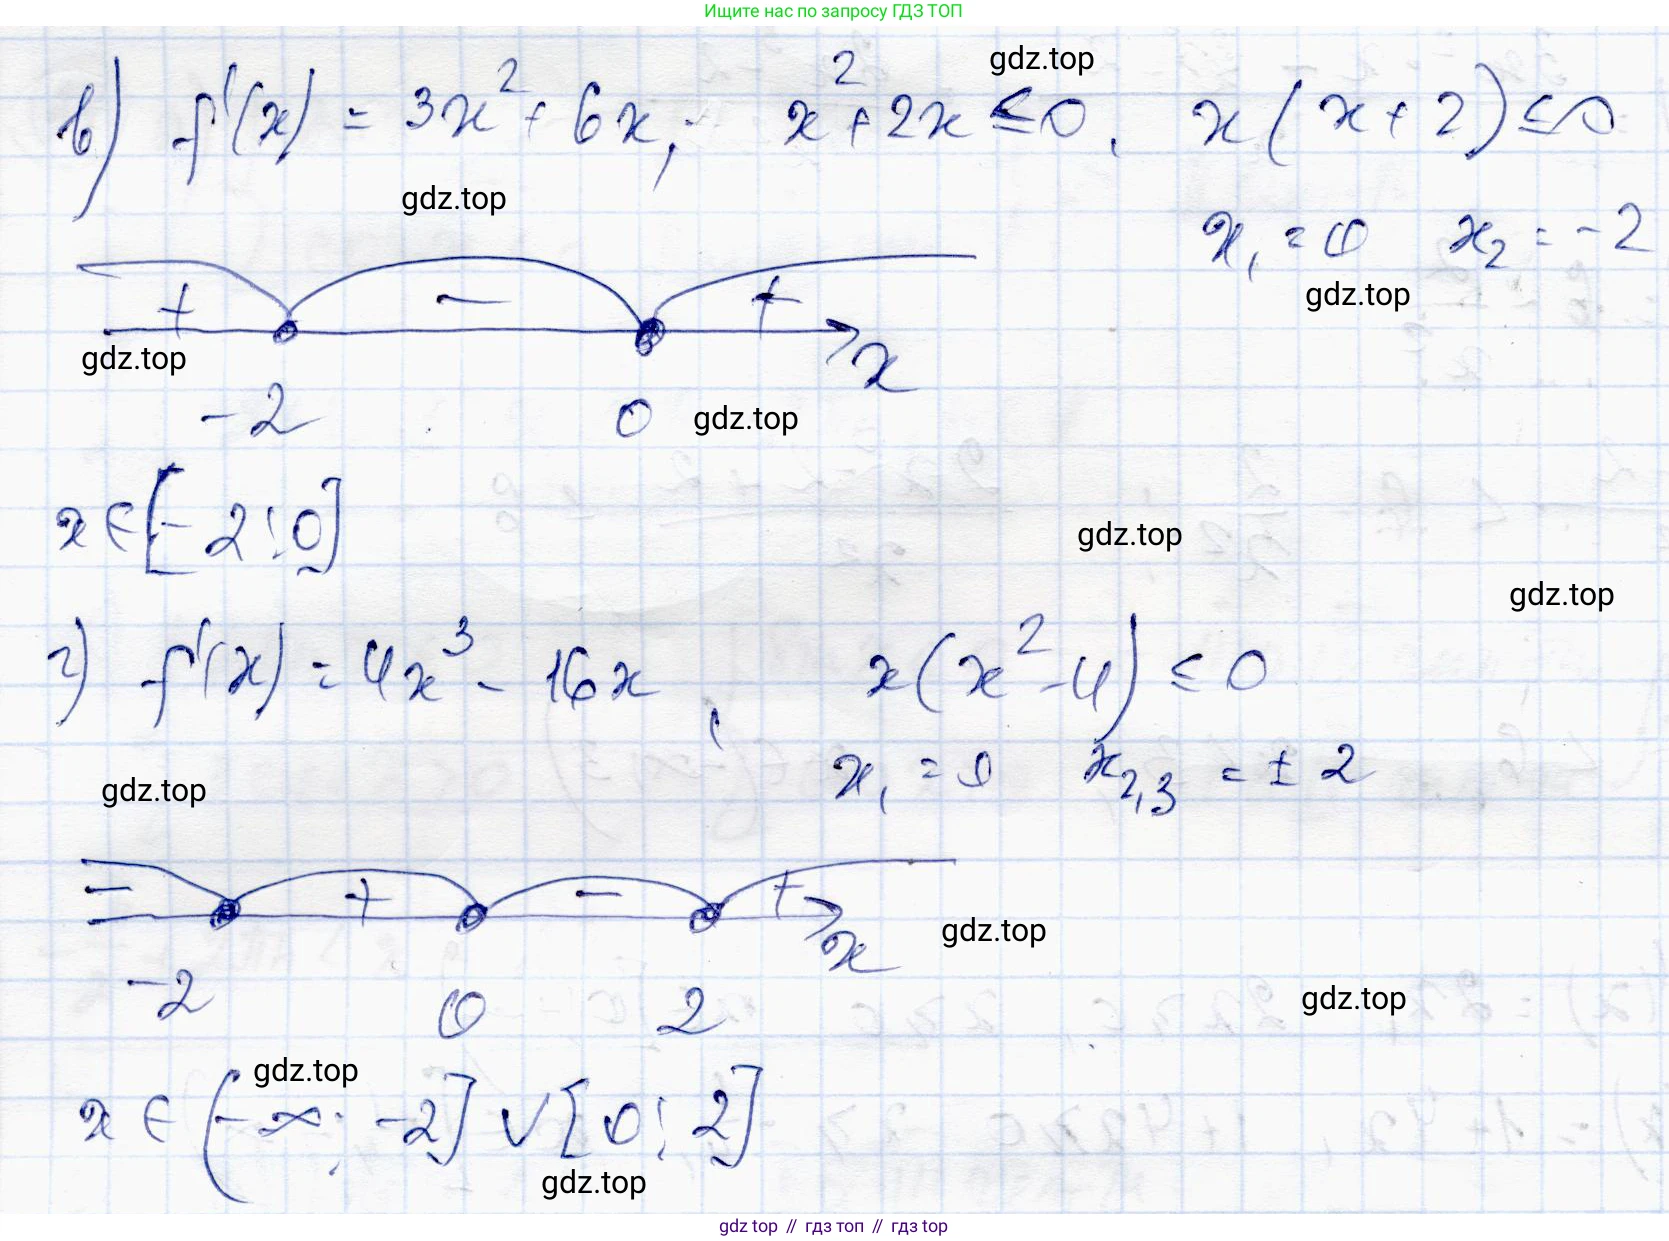 Ищите нас по запросу ГДЗ ТОП
gdz.top
в) f'(x) = 3x² + 6x; x² + 2x ≤ 0, x(x + 2) ≤ 0
gdz.top
x₁ = 0 x₂ = -2
gdz.top
+ − +
gdz.top
x
-2 0
gdz.top
x ∈ [-2; 0]
gdz.top
gdz.top
г) f'(x) = 4x³ - 16x, x(x² - 4) ≤ 0
x₁ = 0 x₂,₃ = ± 2
gdz.top
− + − +
gdz.top
x
-2 0 2
gdz.top
gdz.top
x ∈ (-∞; -2] ∨ [0; 2]
gdz.top
gdz top // гдз топ // гдз top